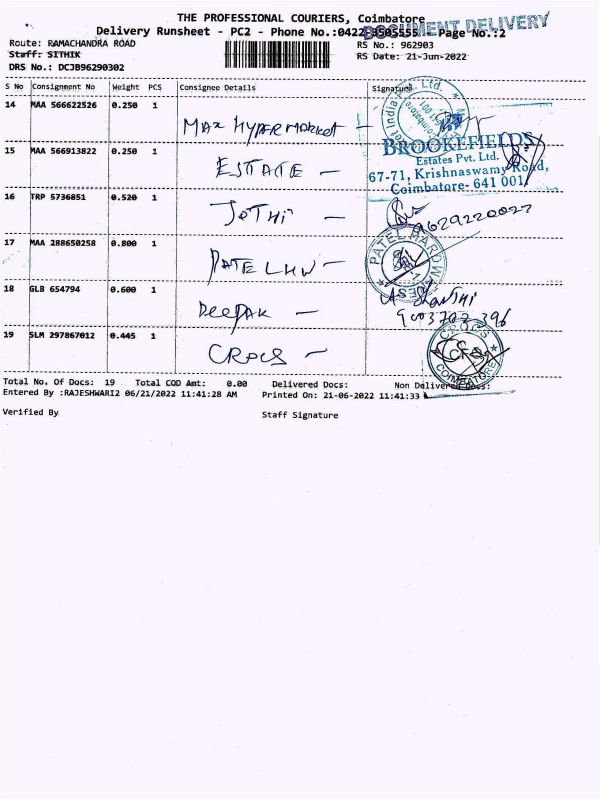 THE PROFESSIONAL COURIERS, Coimbatore
DOCUMENT DELIVERY
Delivery Runsheet - PC2 - Phone No.:0422 3505555 Page No.:2
Route: RAMACHANDRA ROAD RS No.: 962903
Staff: SITHIK RS Date: 21-Jun-2022
DRS No.: DCJB96290302
S No Consignment No Weight PCS Consignee Details Signature
14 MAA 566622526 0.250 1 MAX HYPERMARKET -
15 MAA 566913822 0.250 1 ESTATE -
BROOKEFIELDS
Estates Pvt. Ltd.
67-71, Krishnaswamy Road,
Coimbatore- 641 001
16 TRP 5736851 0.520 1 JOTHI - 9629220027
17 MAA 288650258 0.800 1 PATEL HW -
PATEL HARDWARES
18 GLB 654794 0.600 1 DEEPAK - Shanthi
9003702396
19 SLM 297867012 0.445 1 CROCS -
CROCS
CFS
COIMBATORE
Total No. Of Docs: 19 Total COD Amt: 0.00 Delivered Docs: Non Delivered Docs:
Entered By :RAJESHWARI2 06/21/2022 11:41:28 AM Printed On: 21-06-2022 11:41:33
Verified By Staff Signature